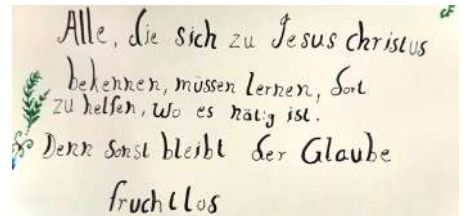 CF
Alle, die sich zu Jesus christus
bekennen, müssen lernen, dort
zu helfen, wo es nätig ist.
Denn sonst bleibt der Glaube
fruchtlos